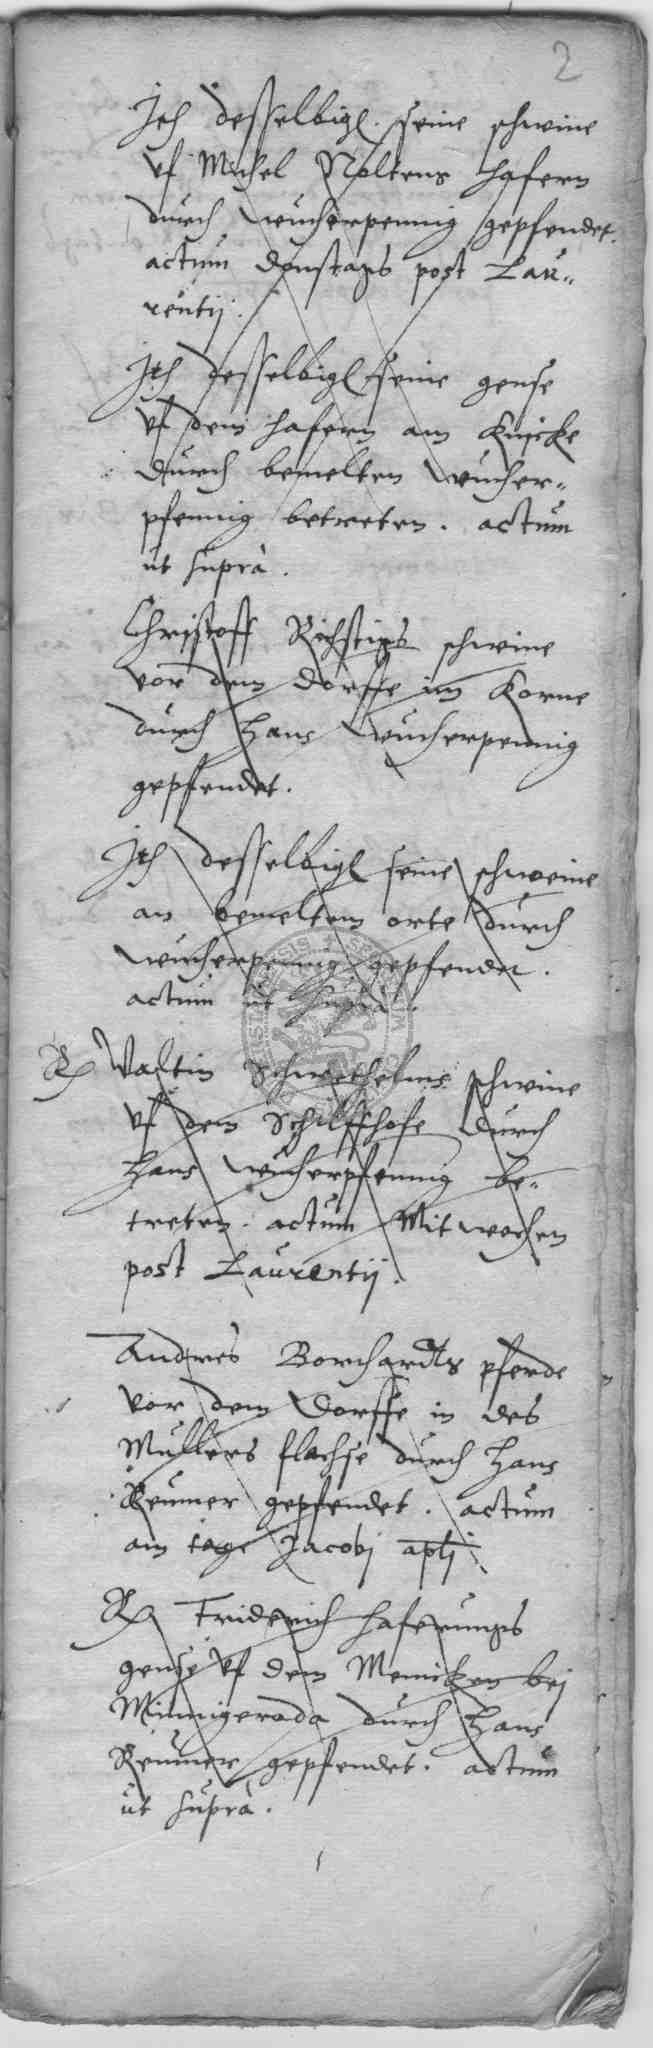 2
Ith desselbigl. seine schwine
vf Michel Noltens hafern
durch wucherpennig gepfendet.
actum donstags post Lau„
rentij.
Ith desselbigl seine gense
vf dem hafern am Knicke
durch bemelten wucher„
pfennig betreten. actum
ut suprà.
Christoff Richstigs schwine
vor dem dorffe im Korne
durch Hans wucherpennig
gepfendet.
Ith desselbigl seine schweine
an bemeltem orte durch
wucherpennig gepfendet.
actum ut suprà.
Valtin Schwethelms schwine
vf dem Schilffhofe durch
Hans wucherpfennig be„
treten. actum Mitwochen
post Laurentij.
Andres Borchardts pferde
vor dem Dorffe in des
Mullers flachse durch Hans
Reumer gepfendet. actum
am tage Jacobj aptj
Friderich haferungs
gense vf dem Menicken bej
Minnigeroda durch Hans
Reumer gepfendet. actum
ut suprà.